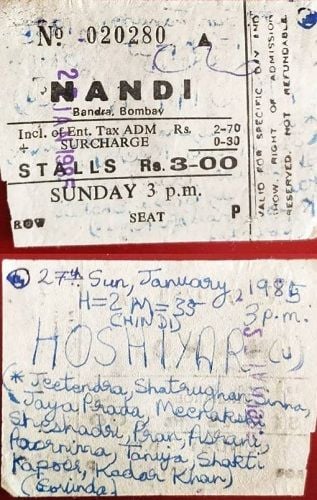 No 020280 ▲
NANDI
Bandra, Bombay
Incl. of Ent. Tax ADM Rs. 2-70
+ SURCHARGE 0-30
STALLS Rs. 3-00
SUNDAY 3 p.m.
ROW SEAT P
VALID FOR SPECIFIC DAY AND
SHOW, RIGHT OF ADMISSION
RESERVED, NOT REFUNDABLE.
27th Sun, January, 1985
H=2 M=35 3 p.m.
(HINDI)
HOSHIYAR (U)
(* Jeetendra, Shatrughan Sinha,
Jaya Prada, Meenakshi
Sheshadri, Pran, Asrani,
Poornima, Taniya, Shakti
Kapoor, Kader Khan)
(Gorinda)